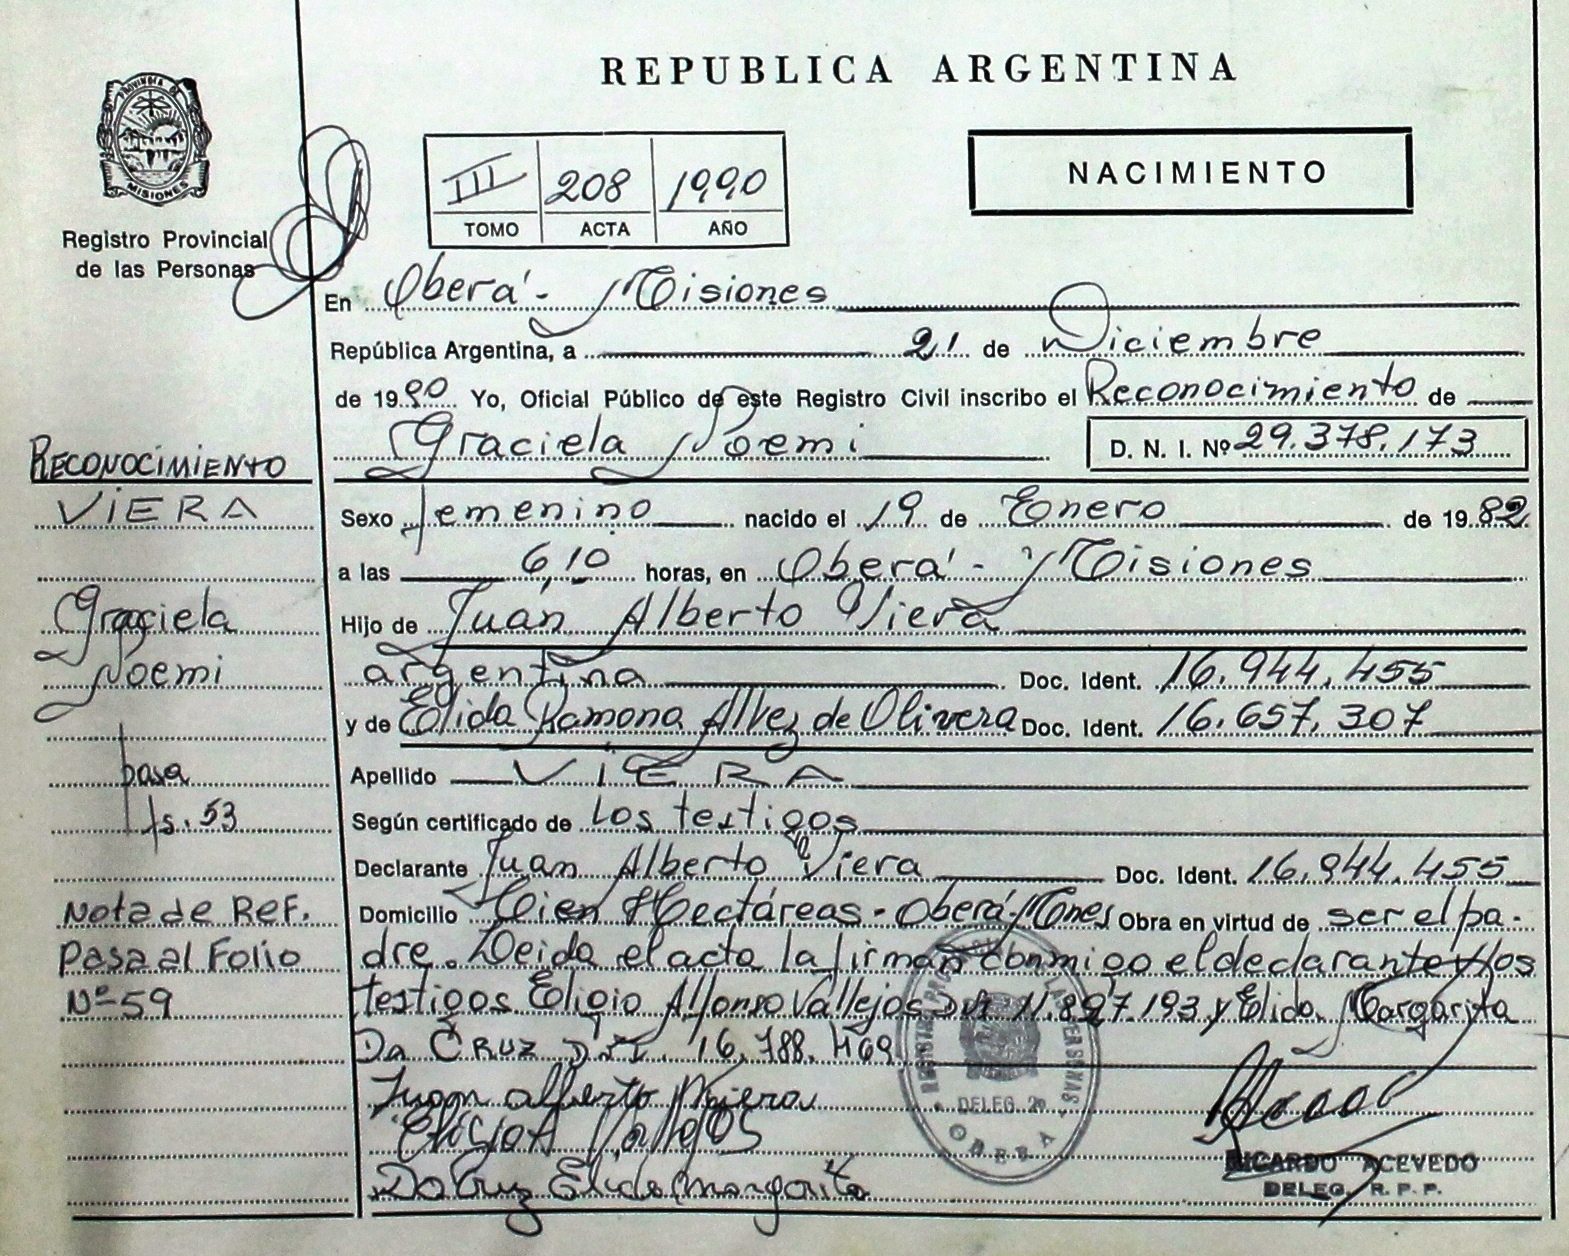 REPUBLICA ARGENTINA
PROVINCIA DE
MISIONES
Registro Provincial
de las Personas
III 208 1990
TOMO ACTA AÑO
NACIMIENTO
En Oberá - Misiones
República Argentina, a 21 de Diciembre
de 1990 Yo, Oficial Público de este Registro Civil inscribo el Reconocimiento de
Graciela Noemi D. N. I. Nº 29.378.173
RECONOCIMIENTO
VIERA
Graciela
Noemi
pasa
fs. 53
Nota de REF.
Pasa al Folio
Nº 59
Sexo femenino nacido el 19 de Enero de 1982
a las 6,10 horas, en Oberá - Misiones
Hijo de Juan Alberto Viera
argentina Doc. Ident. 16.944.455
y de Elida Ramona Alvez de Olivera Doc. Ident. 16.657.307
Apellido VIERA
Según certificado de Los testigos
Declarante Juan Alberto Viera Doc. Ident. 16.944.455
Domicilio Cien Hectáreas - Oberá - Mnes Obra en virtud de ser el pa-
dre. Leida el acta la firman conmigo el declarante y los
testigos Eligio Alfonso Vallejos DNI 11.897.193 y Elida Margarita
Da CRUZ DNI. 16.788.469
Juan alberto Viera
Eligio A Vallejos
Da Cruz Elida Margarita
DELEG. 2ª
OBERA
RICARDO ACEVEDO
DELEG. R. P. P.